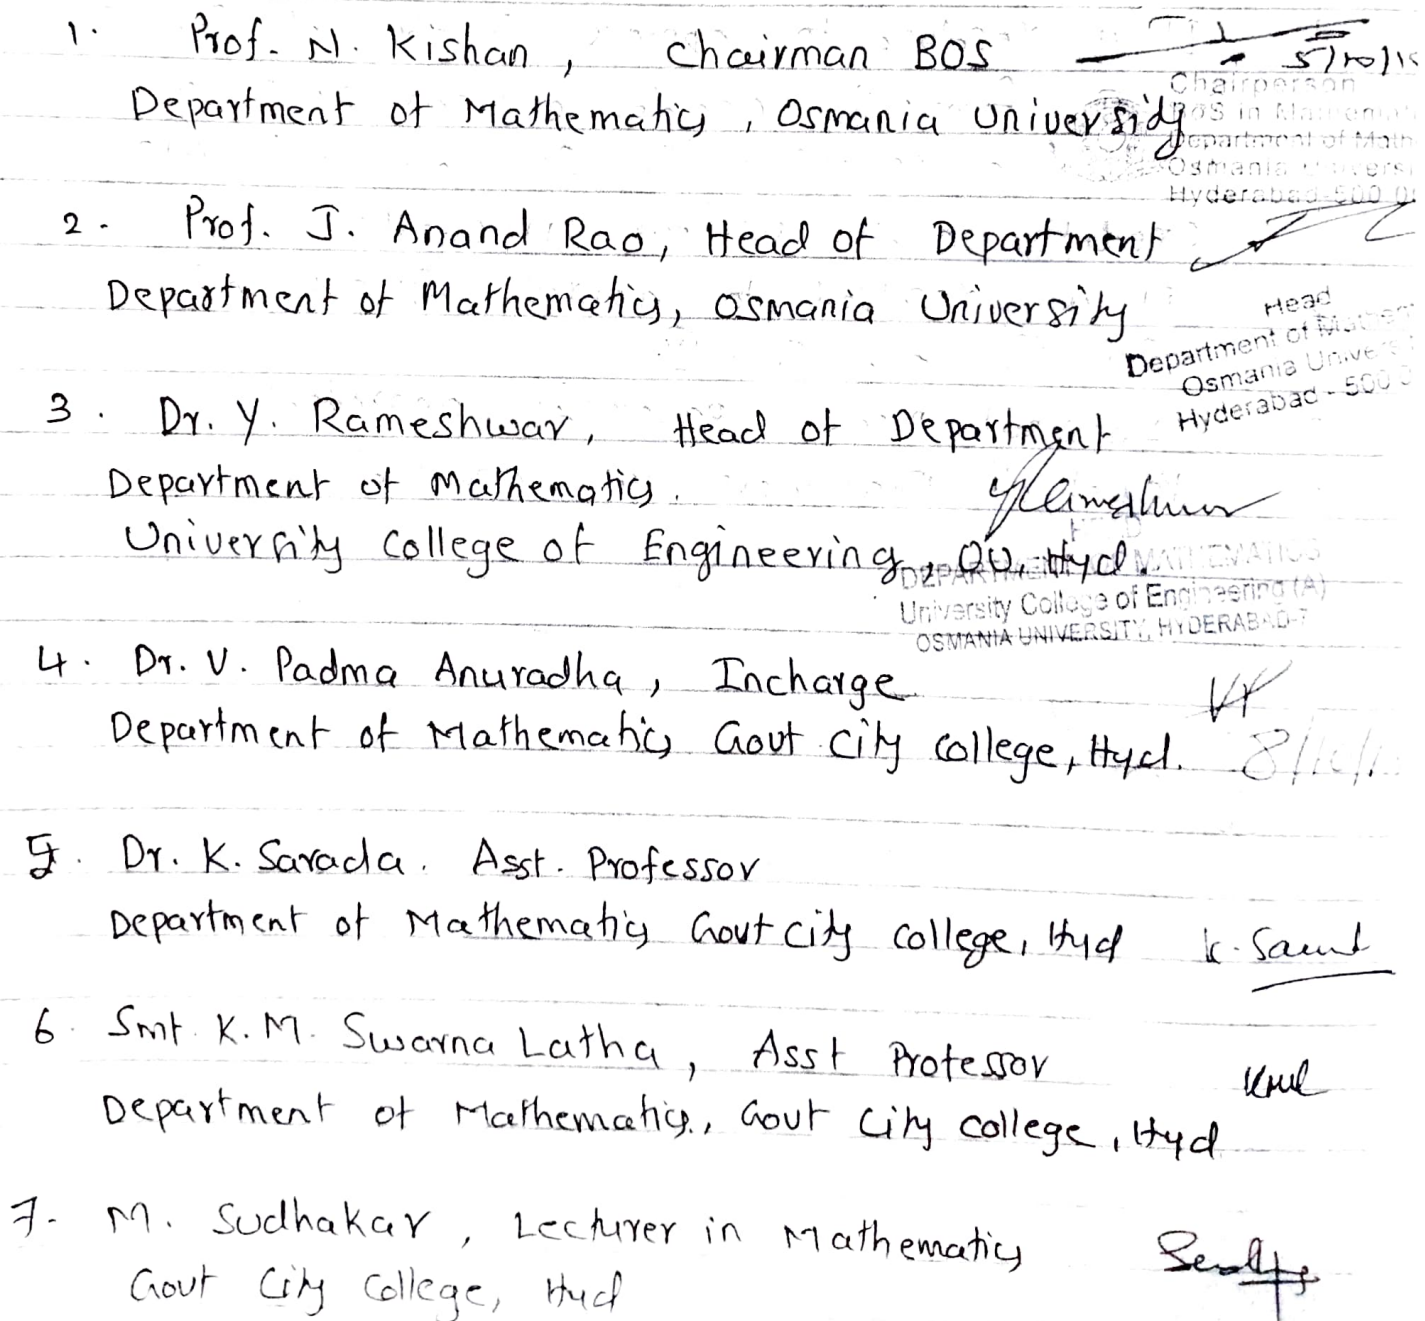 1. Prof. N. Kishan, Chairman BOS
Chairperson
Department of Mathematics, Osmania University
BOS in
Department of Math
Osmania
Hyderabad-500
2. Prof. J. Anand Rao, Head of Department
Department of Mathematics, Osmania University
Head
Department of
Osmania
Hyderabad - 500
3. Dr. Y. Rameshwar, Head of Department
Department of Mathematics.
University College of Engineering, OU, Hyd.
DEPARTMENT OF MATHEMATICS
University College of Engineering (A)
OSMANIA UNIVERSITY, HYDERABAD-7
4. Dr. V. Padma Anuradha, Incharge
Department of Mathematics Govt City College, Hyd.
5. Dr. K. Sarada. Asst. Professor
Department of Mathematics Govt City College, Hyd
6. Smt. K.M. Swarna Latha, Asst Professor
Department of Mathematics, Govt City College, Hyd
7. M. Sudhakar, Lecturer in Mathematics
Govt City College, Hyd